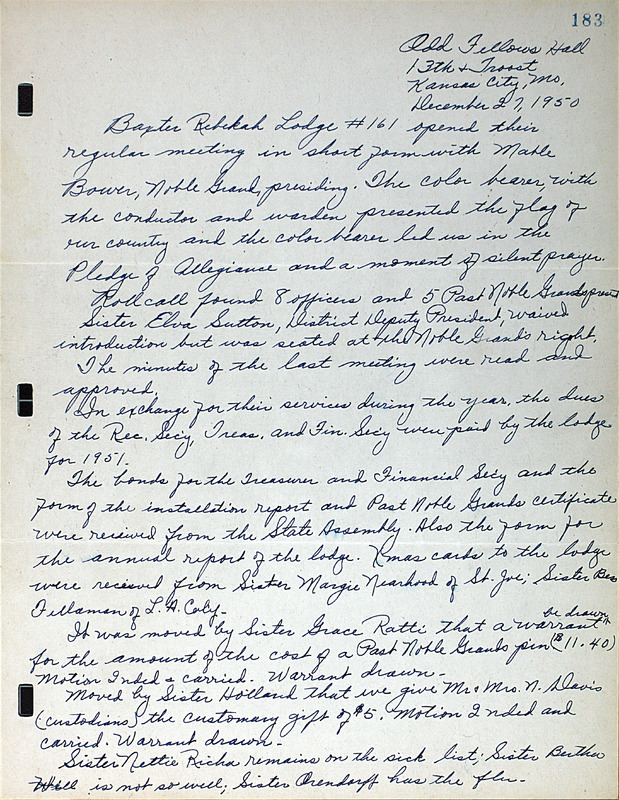 183
Odd Fellows Hall
13th & Troost
Kansas City, Mo,
December 27, 1950
Baxter Rebekah Lodge #161 opened their
regular meeting in short form with Mable
Bower, Noble Grand, presiding. The color bearer, with
the conductor and warden presented the flag of
our country and the color bearer led us in the
Pledge of Allegiance and a moment of silent prayer.
Roll call found 8 officers and 5 Past Noble Grands present
Sister Elva Sutton, District Deputy President, waived
introduction but was seated at the Noble Grand's right.
The minutes of the last meeting were read and
approved.
In exchange for their services during the year, the dues
of the Rec. Secy, Treas. and Fin. Secy were paid by the lodge
for 1951.
The bonds for the Treasurer and Financial Secy and the
form of the installation report and Past Noble Grands certificate
were received from the State Assembly. Also the form for
the annual report of the lodge. Xmas cards to the lodge
were received from Sister Margie Nearhood of St. Joe; Sister Bess
Fellaman of L.A. Caly.
It was moved by Sister Grace Ratti that a warrant be drawn
for the amount of the cost of a Past Noble Grands pin ($11.40)
Motion 2nded & carried. Warrant drawn.
Moved by Sister Holland that we give Mr & Mrs. N. Davis
(custodians) the customary gift of $5. Motion 2nded and
carried. Warrant drawn.
Sister Nettie Richa remains on the sick list; Sister Bertha
Will is not so well; Sister Orendorff has the flu.